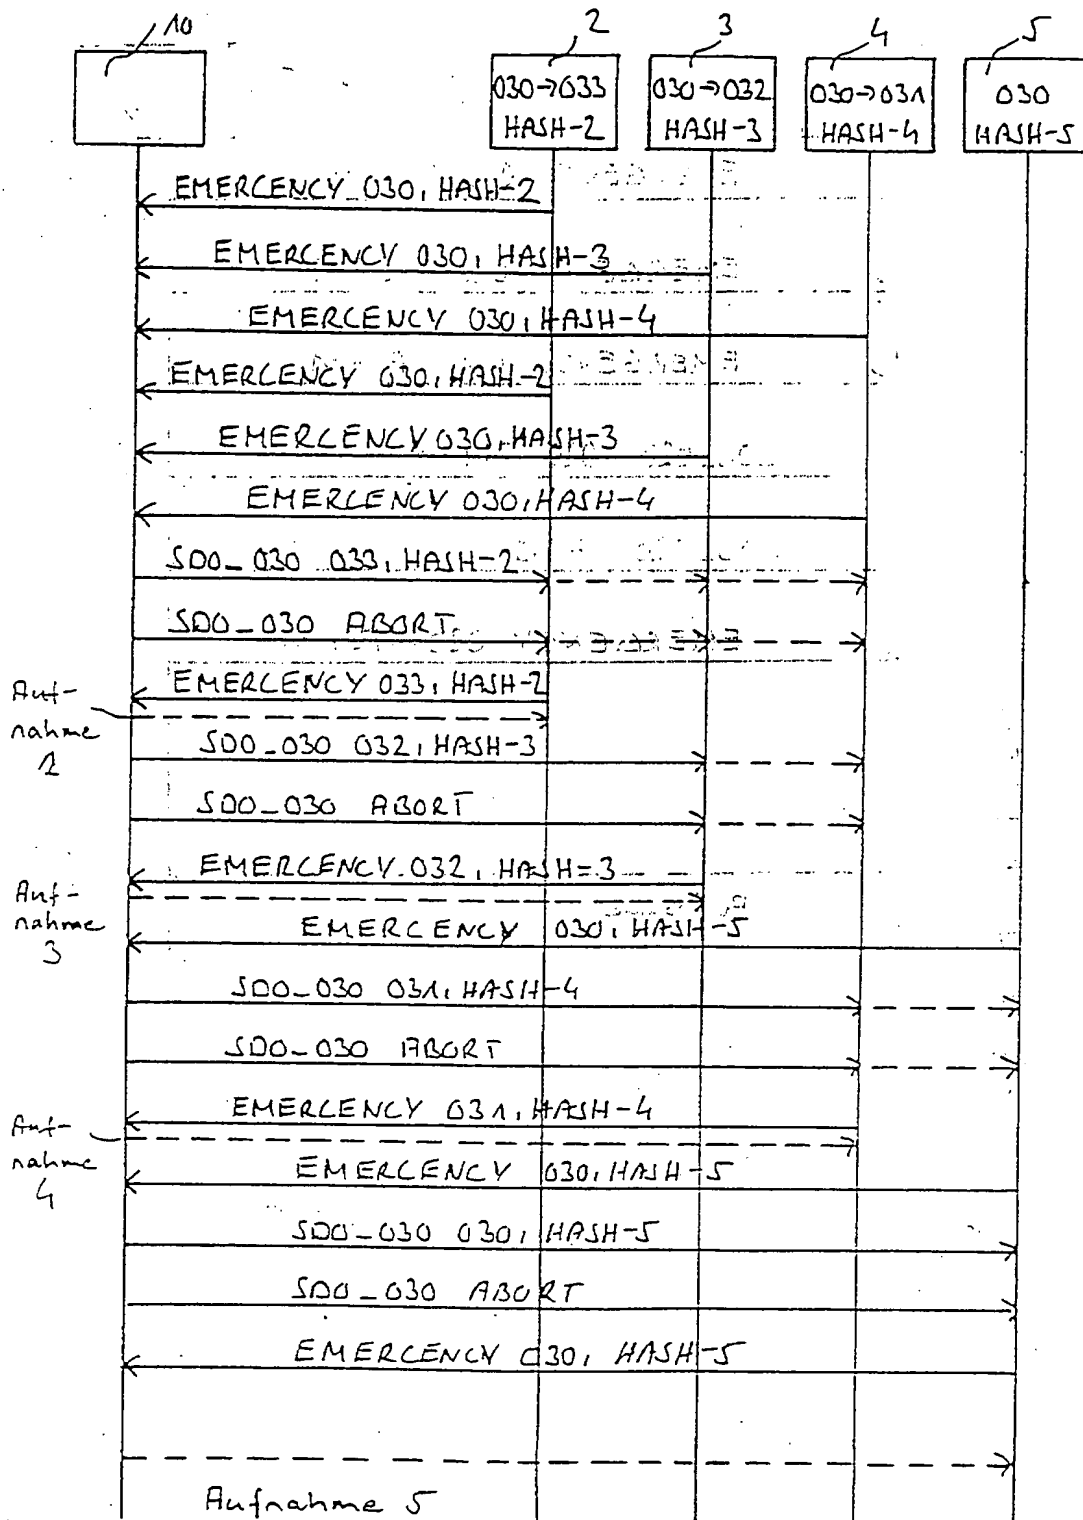 10
2
3
4
5
030→033
HASH-2
030→032
HASH-3
030→031
HASH-4
030
HASH-5
EMERCENCY_030, HASH-2
EMERCENCY 030, HASH-3
EMERCENCY 030, HASH-4
EMERCENCY 030, HASH-2
EMERCENCY 030, HASH-3
EMERCENCY 030, HASH-4
SDO_030 033, HASH-2
SDO_030 ABORT
EMERCENCY 033, HASH-2
Auf-
nahme
2
SDO_030 032, HASH-3
SDO_030 ABORT
EMERCENCY 032, HASH=3
Auf-
nahme
3
EMERCENCY 030, HASH-5
SDO_030 031, HASH-4
SDO_030 ABORT
EMERCENCY 031, HASH-4
Auf-
nahme
4
EMERCENCY 030, HASH-5
SDO_030 030, HASH-5
SDO_030 ABORT
EMERCENCY 030, HASH-5
Aufnahme 5